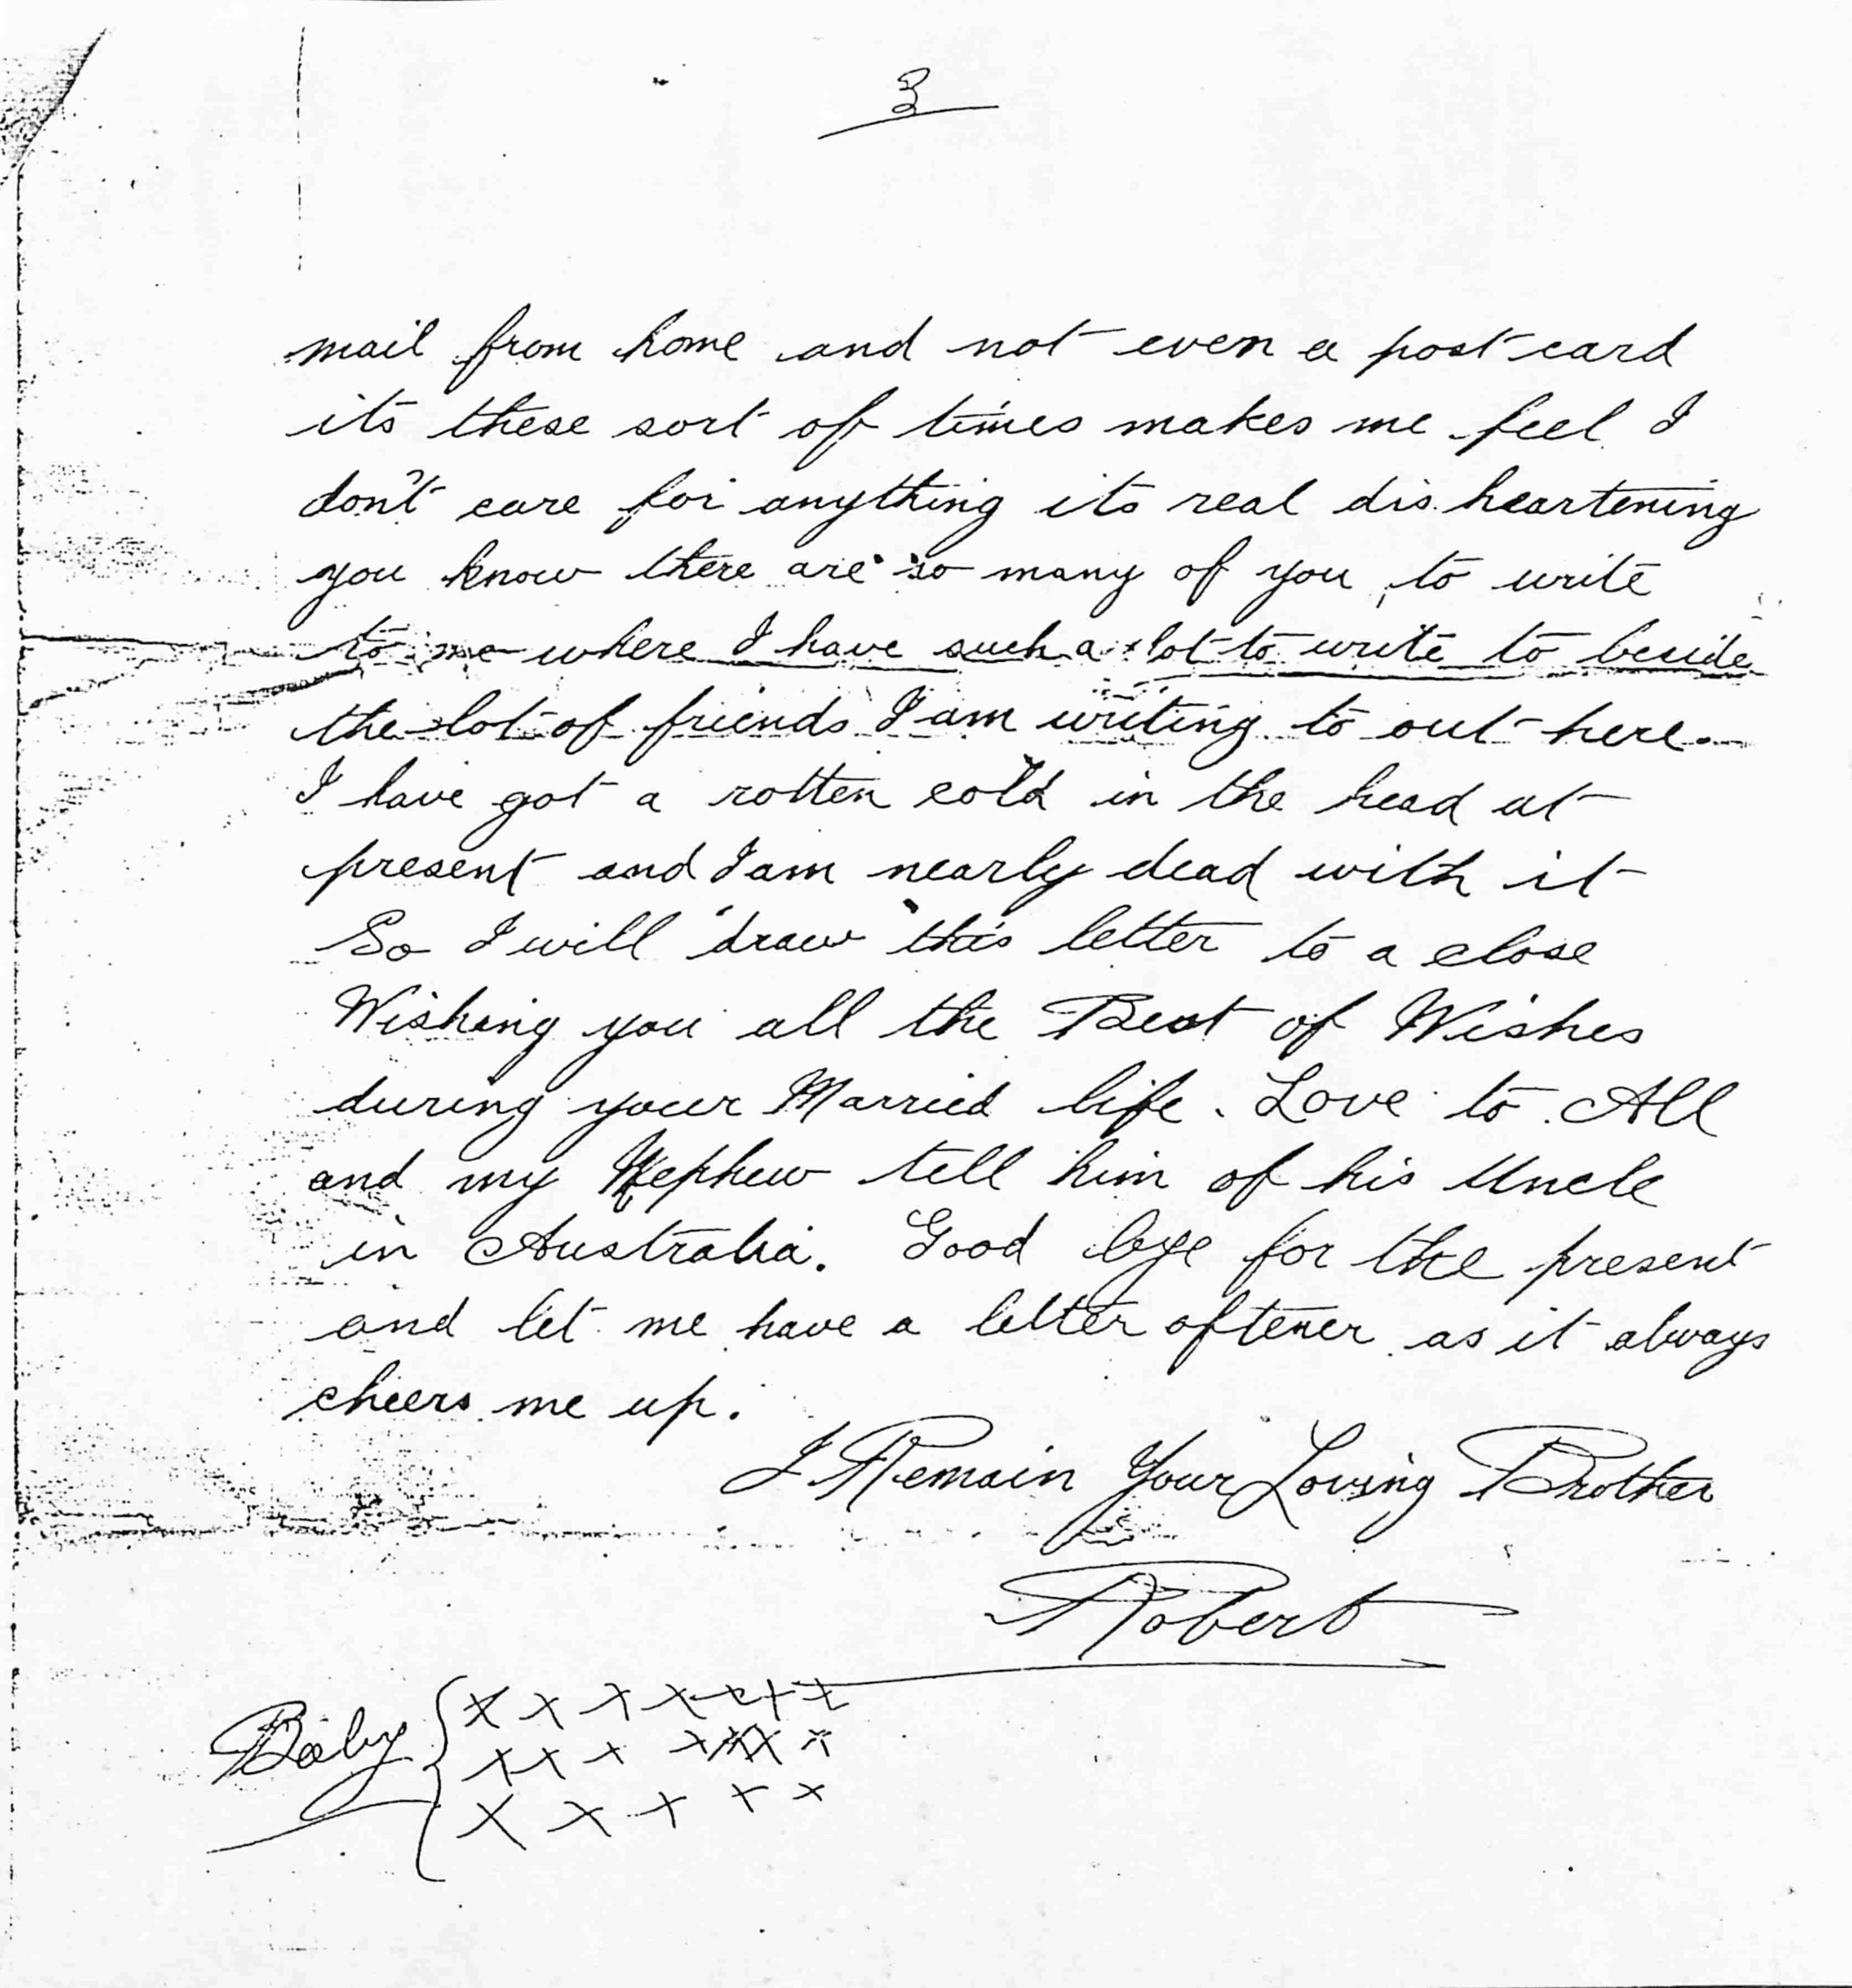 3
mail from home and not even a post card
its these sort of times makes me feel I
don't care for anything its real dis heartening
you know there are so many of you to write
to me where I have such a lot to write to beside
the lot of friends I am writing to out here.
I have got a rotten cold in the head at
present and I am nearly dead with it
So I will draw this letter to a close
Wishing you all the Best of Wishes
during your Married life. Love to All
and my Nephew tell him of his Uncle
in Australia. Good bye for the present
and let me have a letter oftener as it always
cheers me up.
I Remain Your Loving Brother
Robert
Baby { x x x x x x x
x x x x x x x
x x x x x